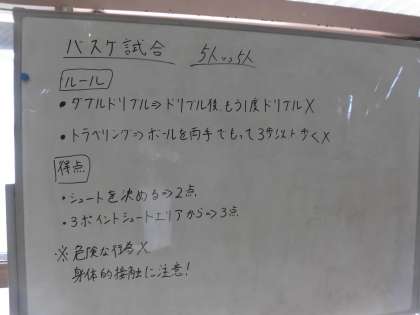 バスケ試合 5人vs5人
ルール
・ダブルドリブル⇒ドリブル後、もう1度ドリブル×
・トラベリング⇒ボールを両手でもって3歩以上歩く×
得点
・シュートを決める⇒2点
・3ポイントシュートエリアから⇒3点
※危険な行為×
身体的接触に注意!